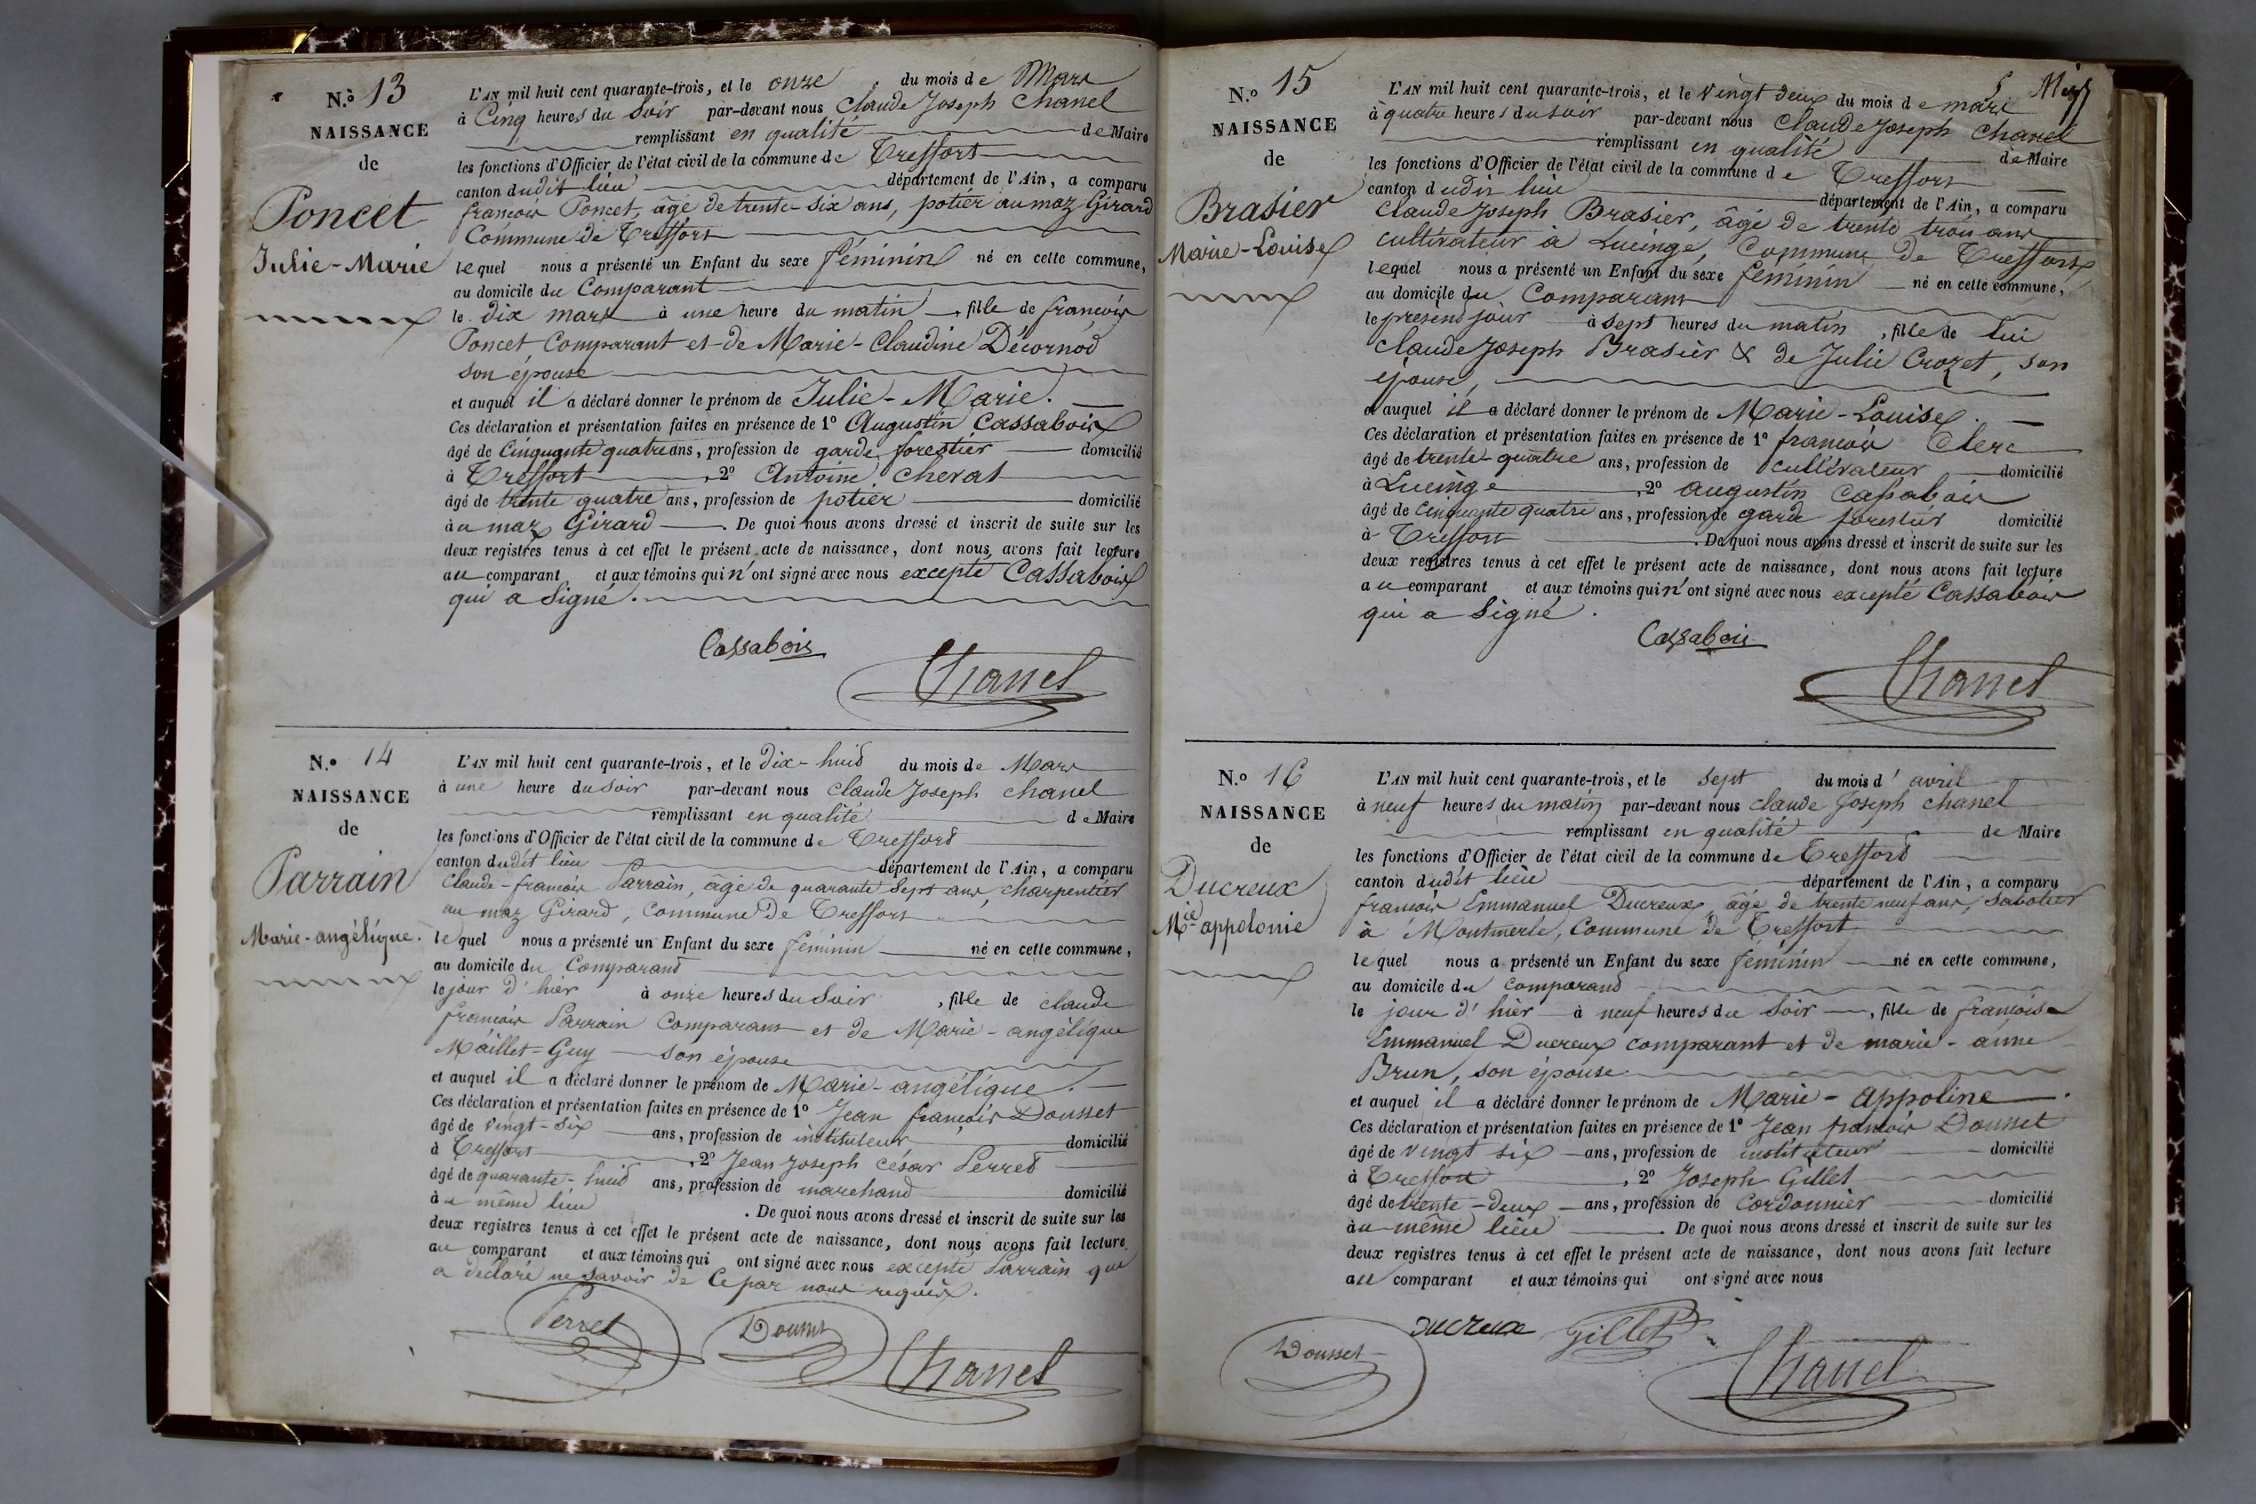 N.o 13
NAISSANCE
de
Poncet
Julie-Marie
L'AN mil huit cent quarante-trois, et le onze du mois de Mars
à Cinq heures du Soir par-devant nous Claude Joseph Chanel
remplissant en qualité de Maire
les fonctions d'Officier de l'état civil de la commune de Treffort
canton dudit lieu département de l'Ain, a comparu
françois Poncet, âgé de trente-six ans, potier au maz Girard
Commune de Treffort
lequel nous a présenté un Enfant du sexe féminin né en cette commune,
au domicile du Comparant
le dix mars à une heure du matin, fille de françois
Poncet Comparant et de Marie-Claudine Décornod
son épouse
et auquel il a déclaré donner le prénom de Julie-Marie.
Ces déclaration et présentation faites en présence de 1o Augustin Cassabois
âgé de Cinquante quatre ans, profession de garde forestier domicilié
à Treffort, 2o Antoine Cherat
âgé de trente quatre ans, profession de potier domicilié
au maz Girard. De quoi nous avons dressé et inscrit de suite sur les
deux registres tenus à cet effet le présent acte de naissance, dont nous avons fait lecture
au comparant et aux témoins qui n'ont signé avec nous excepté Cassabois
qui a Signé.
Cassabois
Chanel
N.o 14
NAISSANCE
de
Parrain
Marie-angélique.
L'AN mil huit cent quarante-trois, et le dix-huit du mois de Mars
à une heure du soir par-devant nous Claude Joseph Chanel
remplissant en qualité de Maire
les fonctions d'Officier de l'état civil de la commune de Treffort
canton dudit lieu département de l'Ain, a comparu
Claude-françois Parrain, âgé de quarante Sept ans, charpentier
au maz Girard, Commune de Treffort
lequel nous a présenté un Enfant du sexe féminin né en cette commune,
au domicile du Comparant
le jour d'hier à onze heures du Soir, fille de claude
françois Parrain Comparant et de Marie-angélique
Maillet-Guy son épouse
et auquel il a déclaré donner le prénom de Marie-angélique.
Ces déclaration et présentation faites en présence de 1o Jean françois Dousset
âgé de vingt-six ans, profession de instituteur domicilié
à Treffort, 2o Jean Joseph César Perret
âgé de quarante-huit ans, profession de marchand domicilié
au même lieu. De quoi nous avons dressé et inscrit de suite sur les
deux registres tenus à cet effet le présent acte de naissance, dont nous avons fait lecture
au comparant et aux témoins qui ont signé avec nous excepté Parrain qui
a déclaré ne Savoir de Ce par nous requis.
Perret
Dousset
Chanel
N.o 15
NAISSANCE
de
Brasier
Marie-Louise
L'AN mil huit cent quarante-trois, et le Vingt deux du mois de mars
à quatre heures du soir par-devant nous Claude Joseph Chanel
remplissant en qualité de Maire
les fonctions d'Officier de l'état civil de la commune de Treffort
canton dudit lieu département de l'Ain, a comparu
Claude Joseph Brasier, âgé de trente trois ans
cultivateur à Lucinge, Commune de Treffort
lequel nous a présenté un Enfant du sexe féminin né en cette commune,
au domicile du Comparant
le présent jour à sept heures du matin, fille de lui
Claude Joseph Brasier & de Julie Crozet, son
épouse,
et auquel il a déclaré donner le prénom de Marie-Louise.
Ces déclaration et présentation faites en présence de 1o françois Clerc
âgé de trente-quatre ans, profession de Cultivateur domicilié
à Lucinge, 2o augustin Cassabois
âgé de Cinquante quatre ans, profession de garde forestier domicilié
à Treffort. De quoi nous avons dressé et inscrit de suite sur les
deux registres tenus à cet effet le présent acte de naissance, dont nous avons fait lecture
au comparant et aux témoins qui n'ont signé avec nous excepté Cassabois
qui a Signé.
Cassabois
Chanel
N.o 16
NAISSANCE
de
Ducreux
Mie appolonie
L'AN mil huit cent quarante-trois, et le sept du mois d'avril
à neuf heures du matin par-devant nous Claude Joseph Chanel
remplissant en qualité de Maire
les fonctions d'Officier de l'état civil de la commune de Treffort
canton dudit lieu département de l'Ain, a comparu
françois Emmanuel Ducreux, âgé de trente neuf ans, Sabotier
à Montmerle, Commune de Treffort
lequel nous a présenté un Enfant du sexe féminin né en cette commune,
au domicile du Comparant
le jour d'hier à neuf heures du Soir, fille de françois
Emmanuel Ducreux comparant et de marie-anne
Brun, son épouse
et auquel il a déclaré donner le prénom de Marie-Appoline.
Ces déclaration et présentation faites en présence de 1o Jean françois Dousset
âgé de vingt six ans, profession de instituteur domicilié
à Treffort, 2o Joseph Gillet
âgé de trente-deux ans, profession de Cordonnier domicilié
au même lieu. De quoi nous avons dressé et inscrit de suite sur les
deux registres tenus à cet effet le présent acte de naissance, dont nous avons fait lecture
au comparant et aux témoins qui ont signé avec nous
Dousset
Ducreux
Gillet
Chanel